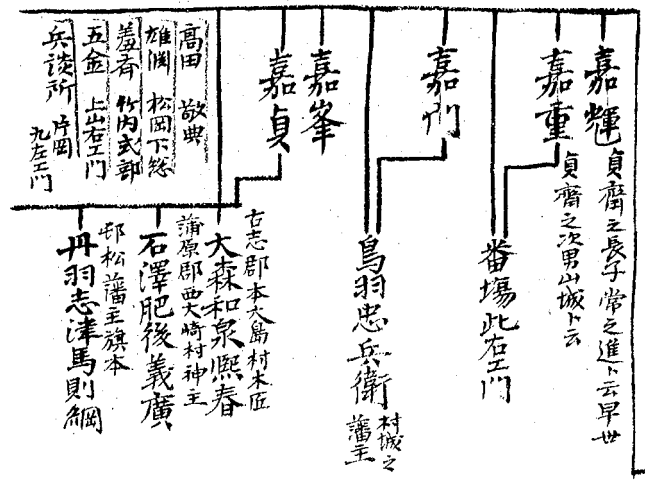 嘉輝
貞齋之長子常之進ト云早世
嘉重
貞齋之次男山城ト云
番場此右エ門
嘉州
鳥羽忠兵衛
村城之
藩主
嘉峯
嘉貞
古志郡本大島村木匠
大森和泉熈春
蒲原郡西大崎村神主
石澤肥後義廣
邨松藩主旗本
丹羽志津馬則綱
高田 敬典
雄淵 松岡下総
羞斉 竹内式部
五金 上山右エ門
兵談所 片岡
九左エ門